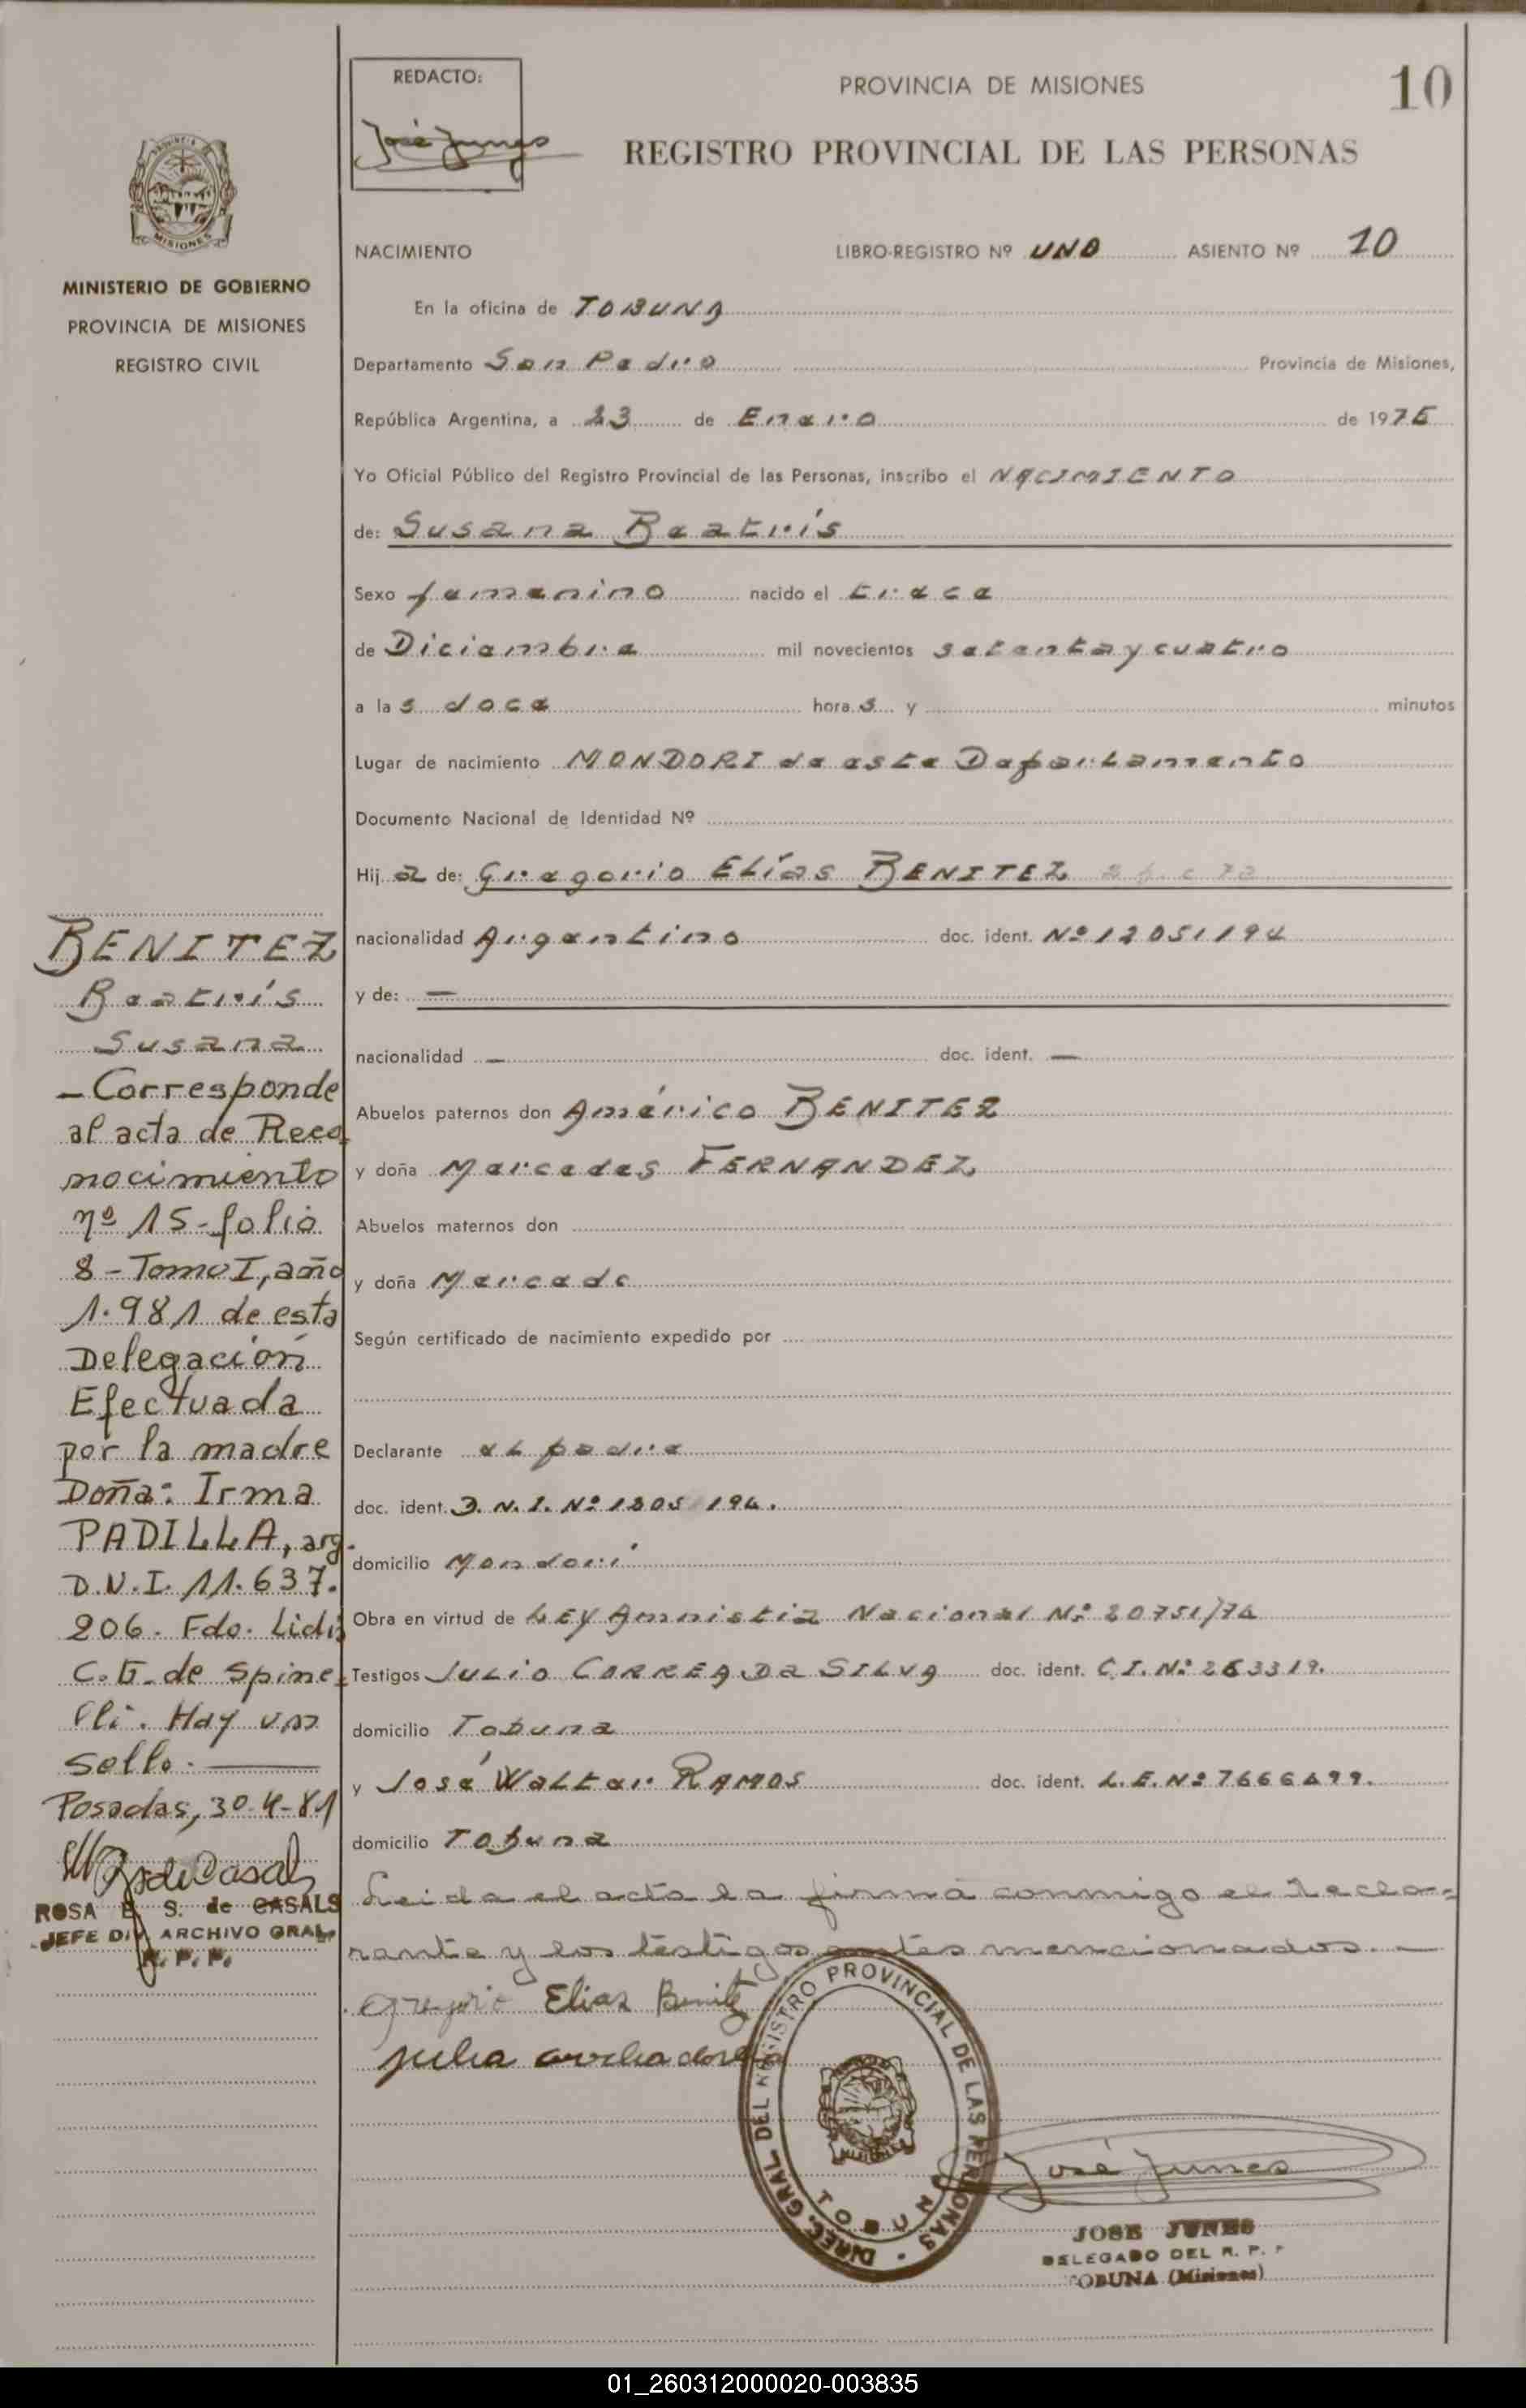 REDACTO:
José Junes
PROVINCIA DE MISIONES
10
REGISTRO PROVINCIAL DE LAS PERSONAS
MISIONES
MINISTERIO DE GOBIERNO
PROVINCIA DE MISIONES
REGISTRO CIVIL
NACIMIENTO LIBRO-REGISTRO Nº UNO ASIENTO Nº 10
En la oficina de TOBUNA
Departamento San Pedro Provincia de Misiones,
República Argentina, a 23 de Enero de 1975
Yo Oficial Público del Registro Provincial de las Personas, inscribo el NACIMIENTO
de: Susana Beatrís
Sexo femenino nacido el trece
de Diciembre mil novecientos setenta y cuatro
a las doce horas y minutos
Lugar de nacimiento MONDORI de este Departamento
Documento Nacional de Identidad Nº
Hija de: Gregorio Elías BENITEZ
nacionalidad Argentino doc. ident. Nº 12051194
y de: —
nacionalidad — doc. ident. —
Abuelos paternos don Américo BENITEZ
y doña Mercedes FERNANDEZ
Abuelos maternos don
y doña
Según certificado de nacimiento expedido por
Declarante el padre
doc. ident. D.N.I. Nº
domicilio Mondorí
Obra en virtud de LEY Amnistia Nacional Nº 20751/74
Testigos JULIO CORREA Da SILVA doc. ident. C.I. Nº 263319.
domicilio Tobuna
y José Walter RAMOS doc. ident. L.E. Nº 7666499.
domicilio Tobuna
Leida el acta la firma conmigo el decla-
rante y los testigos antes mencionados. —
Gregorio Elias Benitez
BENITEZ
Beatrís
Susana
- Corresponde
al acta de Reco-
nocimiento
nº 15 - folio
8 - Tomo I, año
1.981 de esta
Delegación
Efectuada
por la madre
Doña: Irma
PADILLA, arg.
D.N.I. 11.637.
206. Fdo. Lidia
C. G. de Spine-
lli. Hay un
sello. —
Posadas, 30-4-81
ROSA E. S. de CASALS
JEFE DIV. ARCHIVO GRAL.
R. P. P.
DIREC. GRAL. DEL REGISTRO PROVINCIAL DE LAS PERSONAS
TOBUNA
José Junes
JOSE JUNES
DELEGADO DEL R. P. P
TOBUNA (Misiones)
01_260312000020-003835